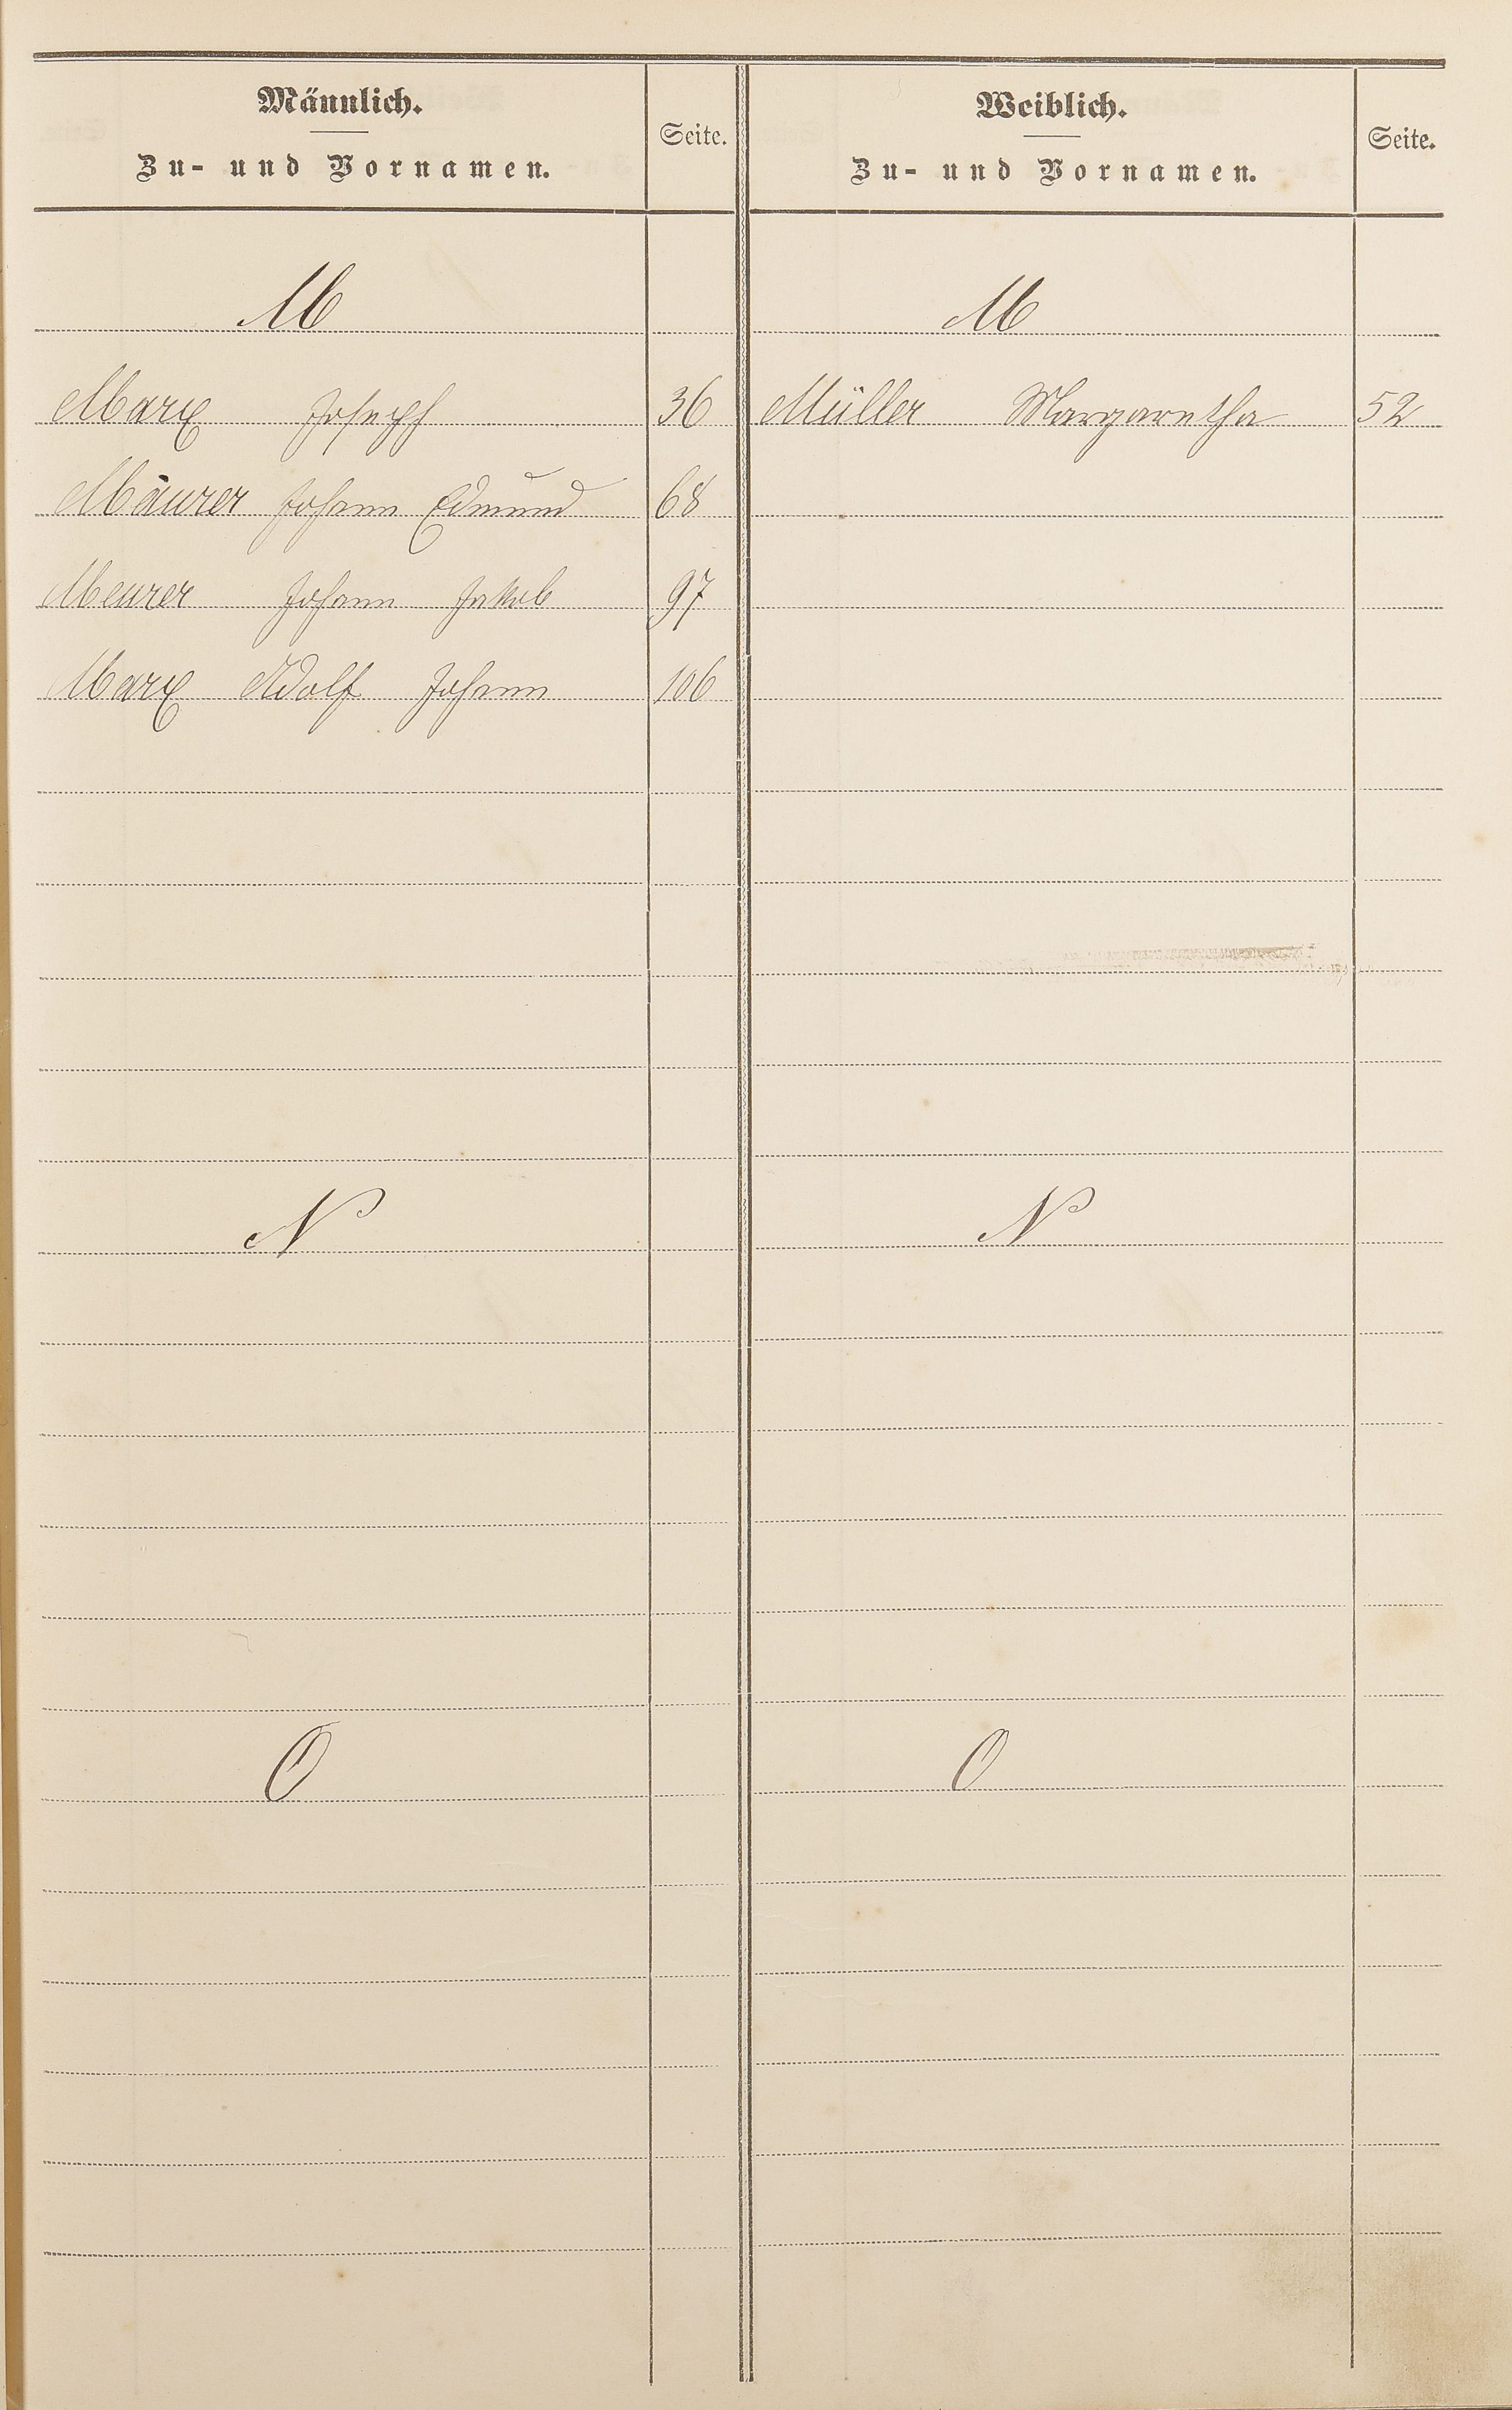 Männlich. Weiblich.
Seite. Seite.
Zu- und Vornamen. Zu- und Vornamen.
M M
Marx Joseph 36 Müller Margaretha 52
Mäurer Johann Edmund 68
Meurer Johann Jakob 97
Marx Adolf Johann 106
N N
O O